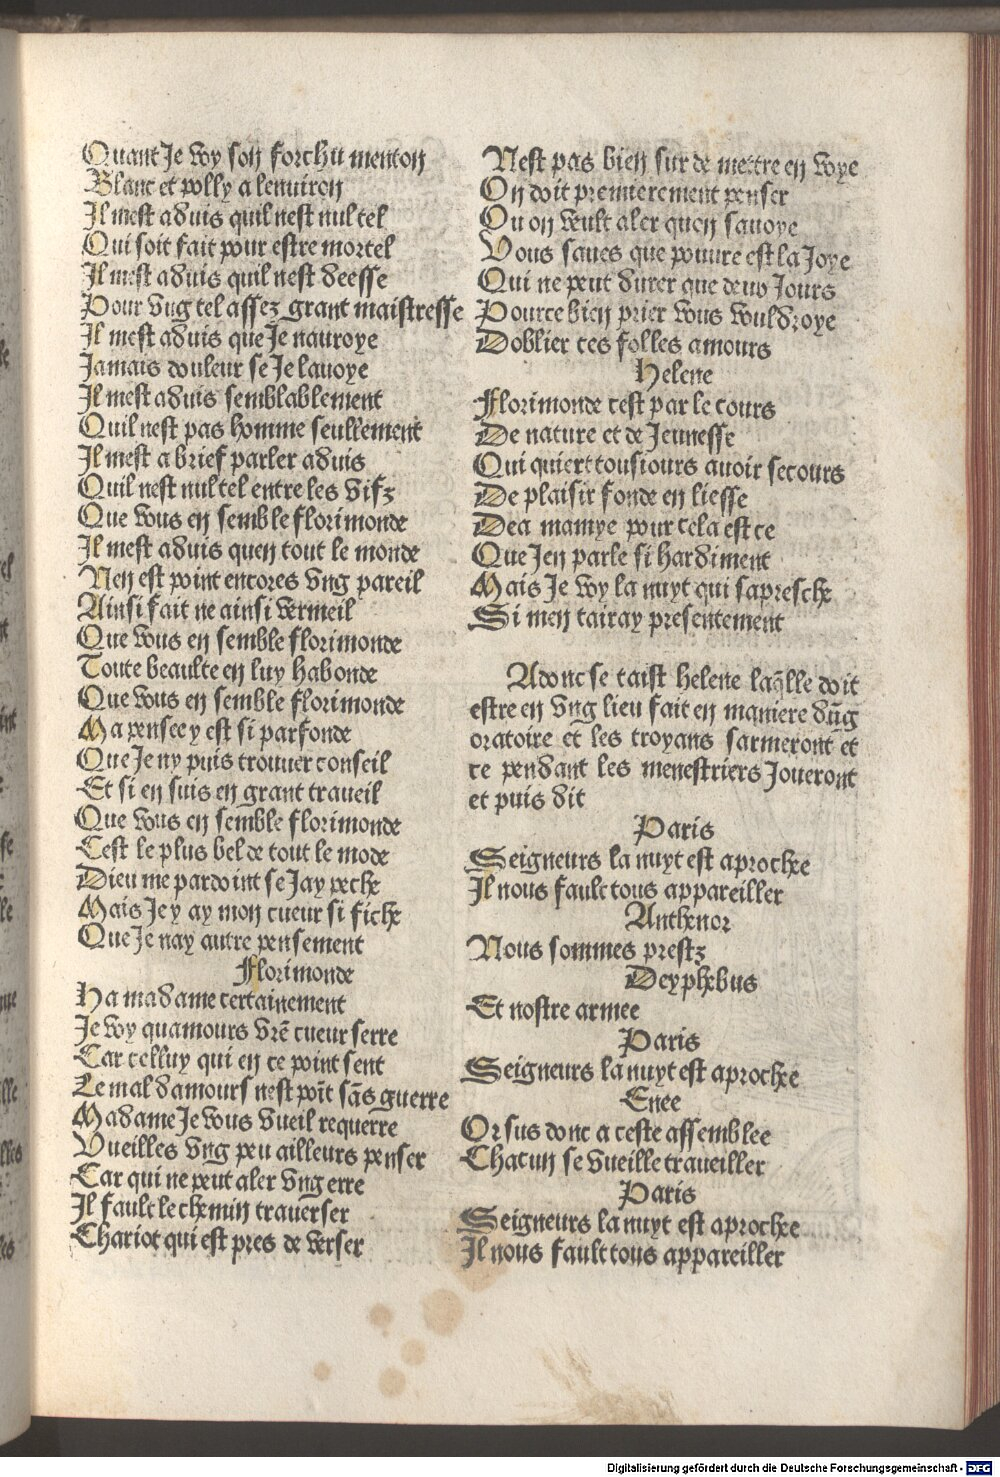 Quant Je voy son forchu menton
Blanc et polly a lenuiron
Il mest aduis quil nest nul tel
Qui soit fait pour estre mortel
Il mest aduis quil nest deesse
Pour vng tel assez grant maistresse
Il mest aduis que Je nauroye
Jamais douleur se Je lauoye
Il mest aduis semblablement
Quil nest pas homme seullement
Il mest a brief parler aduis
Quil nest nul tel entre les vifz
Que vous en semble florimonde
Il mest aduis quen tout le monde
Nen est point encores vng pareil
Ainsi fait ne ainsi vermeil
Que vous en semble florimonde
Toute beaulte en luy habonde
Que vous en semble florimonde
Ma pensee y est si parfonde
Que Je ny puis trouuer conseil
Et si en suis en grant traueil
Que vous en semble florimonde
Cest le plus bel de tout le mode
Dieu me pardoint se Jay peche
Mais Je y ay mon cueur si fiche
Que Je nay autre pensement
Florimonde
Ha madame certainement
Je voy quamours vrē cueur serre
Car celluy qui en ce point sent
Le mal damours nest poīt sās guerre
Madame Je vous vueil requerre
Vueilles vng peu ailleurs penser
Car qui ne peut aler vng erre
Il fault le chemin trauerser
Chariot qui est pres de verser
Nest pas bien sur de mettre en voye
On doit premierement penser
Ou on veult aler quen sauoye
Vous saues que pouure est la Joye
Qui ne peut durer que deux Jours
Pource bien prier vous vouldroye
Doblier ces folles amours
Helene
Florimonde cest par le cours
De nature et de Jeunesse
Qui quiert tousiours auoir secours
De plaisir fonde en liesse
Dea mamye pour cela est ce
Que Jen parle si hardiment
Mais Je voy la nuyt qui sapresche
Si men tairay presentement
Adonc se taist helene laq̄lle doit
estre en vng lieu fait en maniere dūg
oratoire et les troyans sarmeront et
ce pendant les menestriers Joueront
et puis dit
Paris
Seigneurs la nuyt est aprochee
Il nous fault tous appareiller
Anthenor
Nous sommes prestz
Deyphebus
Et nostre armee
Paris
Seigneurs la nuyt est aprochee
Enee
Or sus donc a ceste assemblee
Chacun se vueille traueiller
Paris
Seigneurs la nuyt est aprochee
Il nous fault tous appareiller
Digitalisierung gefördert durch die Deutsche Forschungsgemeinschaft - DFG